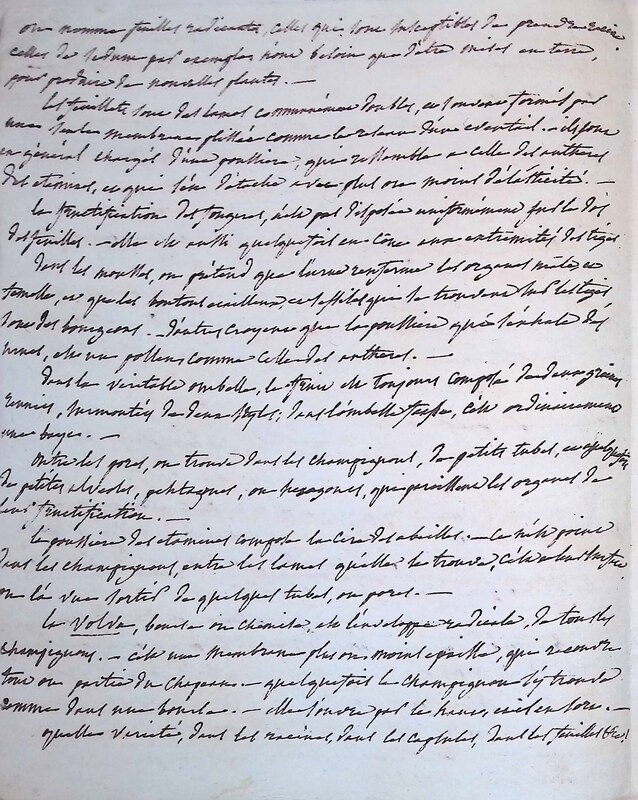 on nomme feuilles radicantes, celles qui sont susceptibles de prendre racine
celles de sedum par exemple n'ont besoin que d'etre mises en terre,
pour produire de nouvelles plantes. —
Les feuillets sont des lames communément doubles, et souvent formés par
une seule membrane plissée comme le d'un eventail. — ils sont
en général chargés d'une poussiere, qui ressemble a celle des antheres
des etamines, et qui s'en détache avec plus ou moins d'élasticité. —
La fructification des fougeres, n'est pas disposée uniformément sur le dos
des feuilles. — elle est aussi quelquefois en aux extremités des tiges
Dans les mousses, on prétend que l'urne renferme les organes mâle et
femelle, et que les boutons ecailleux, et qui se trouvent sur les tiges
sont des bourgeons. — D'autres croyent que la poussiere qui s'exhale des
urnes, est un pollen comme celle des antheres. —
Dans la veritable ombelle, le fruit est toujours composé de deux graines
reunies, surmontées de deux styles; dans l'ombelle fausse, c'est ordinairement
une baye. —
Outre les pores, on trouve dans les champignons, de petits tubes, et quelquefois
de petites alveoles, pentagones, ou hexagones, que paroissent les organes de
leur fructification. —
La poussiere des etamines compose la cire des abeilles. — Ce n'est point
dans les champignons, entre les lames qu'elle se trouve, c'est a leur surface
on l'a vue sortir de quelques tubes, ou pores. —
Le Volva, bourse ou chemise, est l'enveloppe radicale, de tous les
champignons. — c'est une membrane plus ou moins epaisse, qui recouvre
tout ou partie du chapeau. — quelquefois le champignon s'y trouve
comme dans une bourse. — elle s'ouvre par le haut, et il en sort. —
quelle varieté, dans les racines, dans les capsules, dans les feuilles &c!